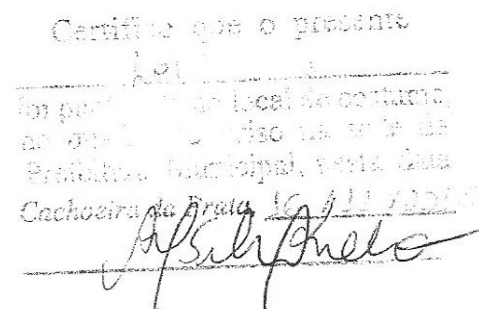 Certifico que o presente
Lei
foi publicado no local de costume,
no quadro de aviso na sede da
Prefeitura Municipal, nesta data
Cachoeira da Prata, 16 / 11 /